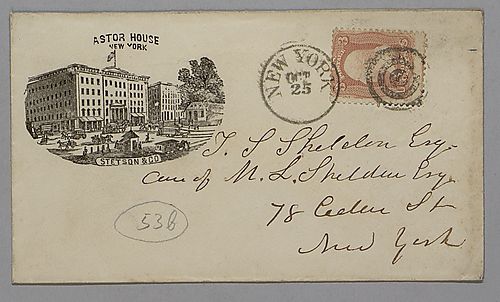 ASTOR HOUSE
NEW YORK
STETSON & CO
NEW YORK
OCT
25
3 3
T. S. Sheldon Esq.
Care of M. L. Sheldon Esq
78 Cedar St
New York
53b